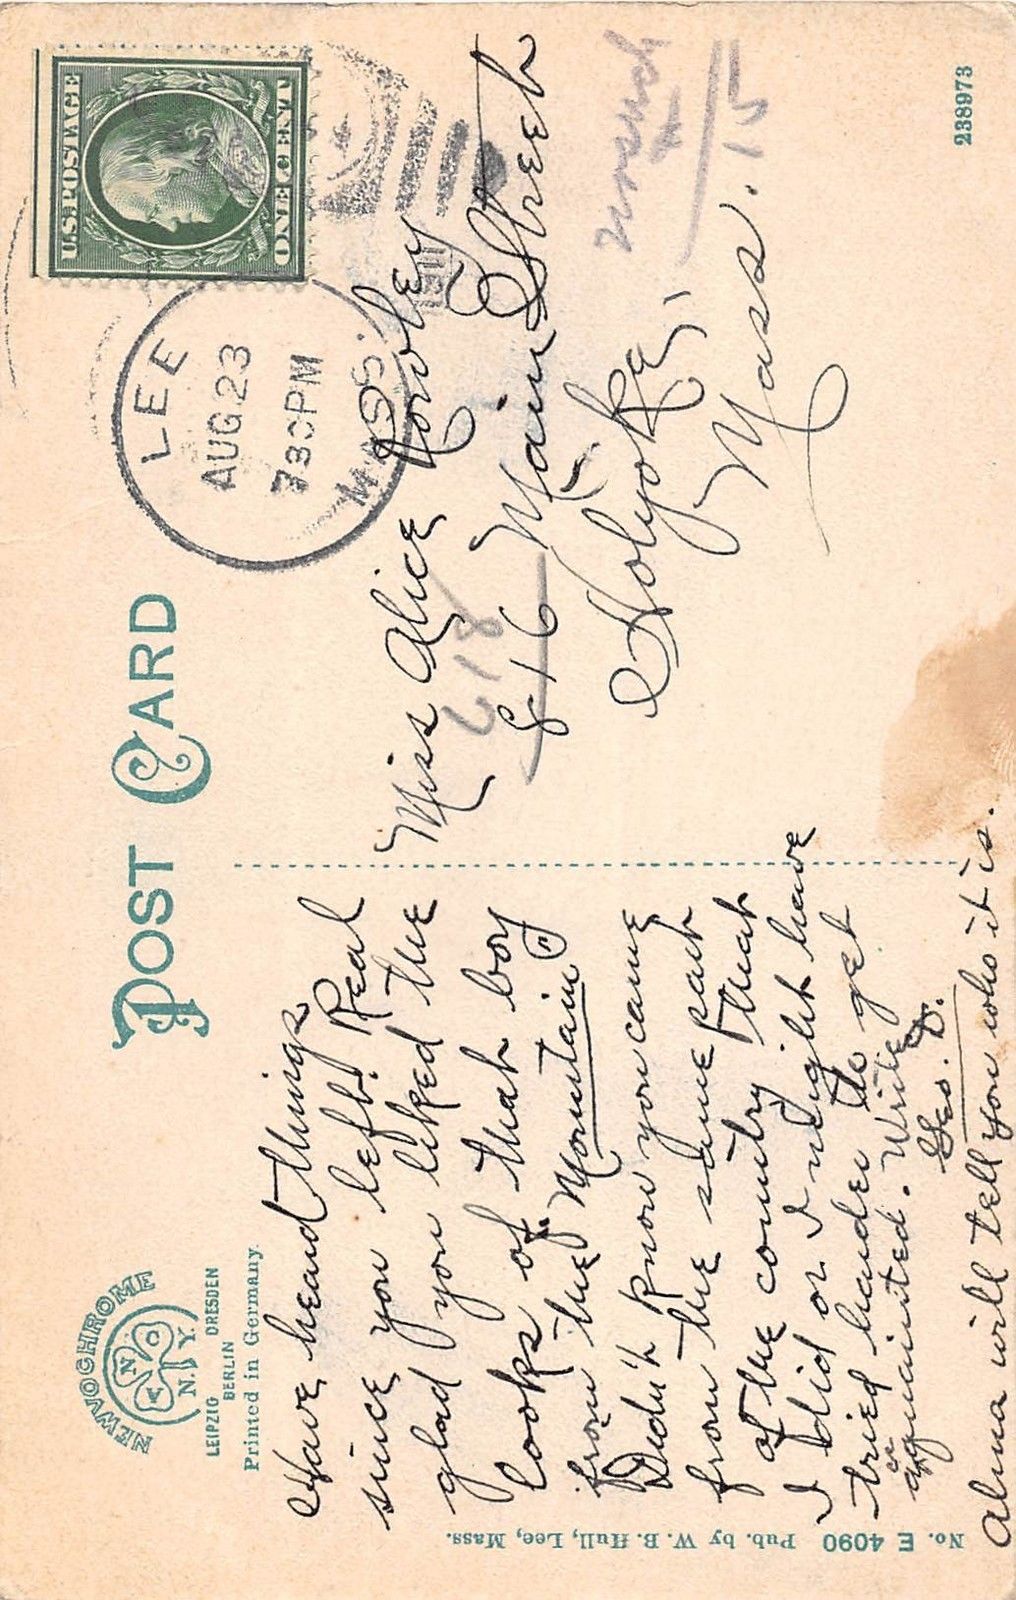 POST CARD
NEWVOCHROME
A N C O
N. Y.
LEIPZIG DRESDEN
BERLIN
Printed in Germany.
U.S. POSTAGE
ONE CENT
LEE
AUG 23
730 PM
MASS.
1911
Have heard things
since you left. Real
glad you liked the
looks of that boy
from the Mountain
Didn't know you came
from the same part
of the country that
I did or I might have
tried harder to get
acquainted. Write
Geo. D.
Alma will tell you who it is.
Miss Alice Rowley
618
816 Main Street
Holyoke,
Mass.
15
No. E 4090 Pub. by W. B. Hull, Lee, Mass.
238973